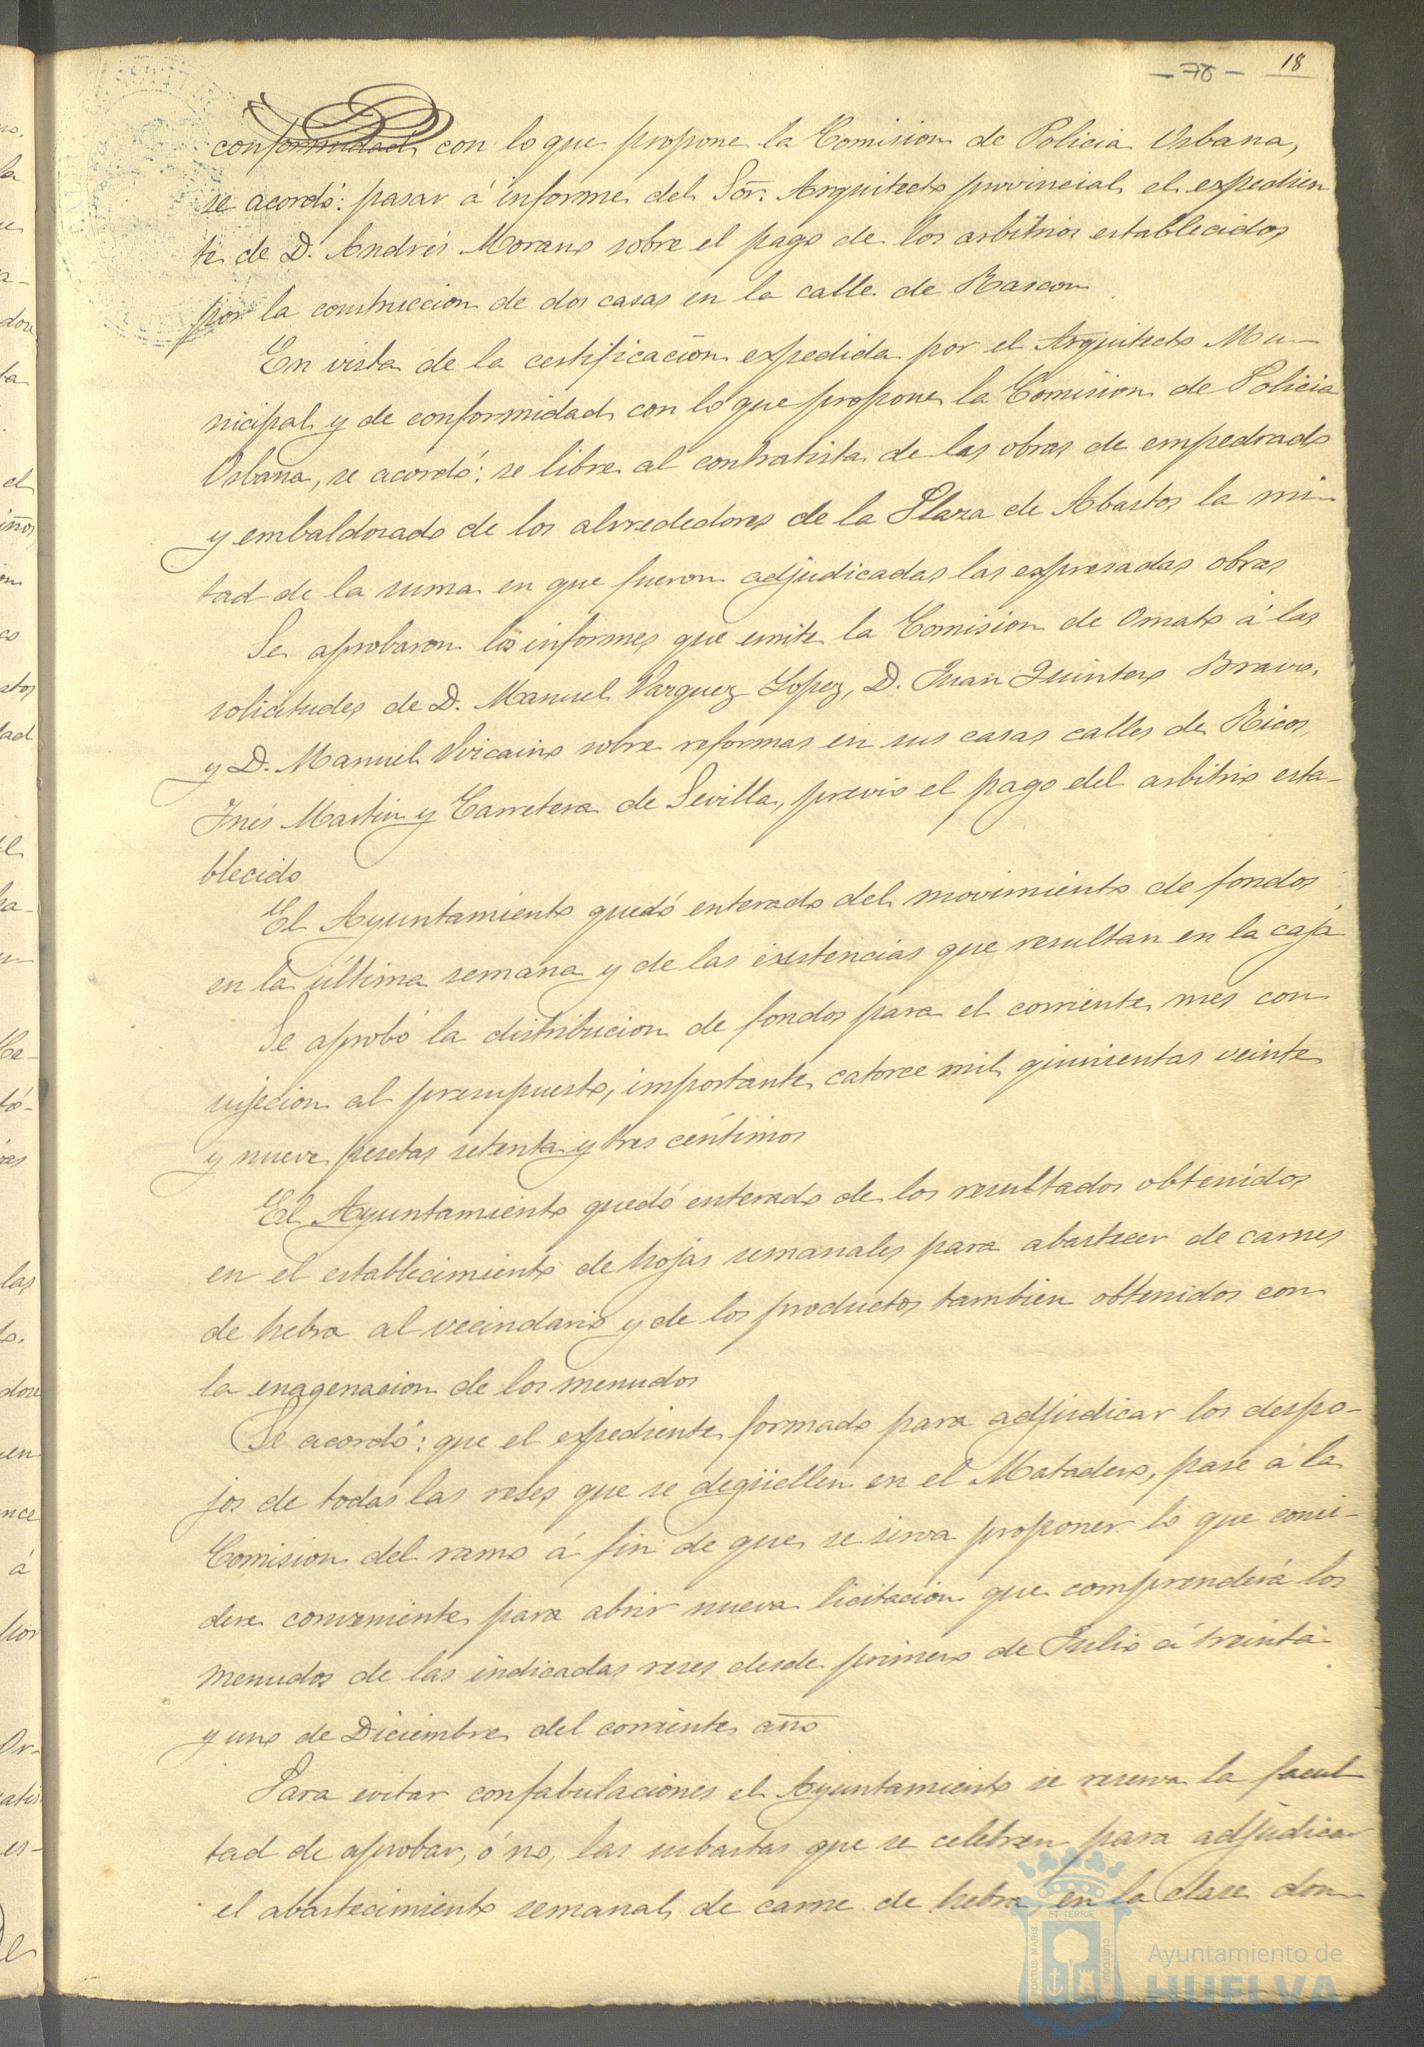 - 78 - 18
conformidad con lo que propone la Comision de Policia Urbana,
se acordó: pasar á informe del Sōr. Arquitecto provincial el expedien
te de D. Andrés Morano sobre el pago de los arbitrios establecidos
por la construccion de dos casas en la calle de Rascon
En vista de la certificación expedida por el Arquitecto Mu-
nicipal y de conformidad con lo que propone la Comision de Policia
Urbana, se acordó: se libre al contratista de las obras de empedrado
y embaldosado de los alrrededores de la Plaza de Abastos la mi-
tad de la suma en que fueron adjudicadas las expresadas obras
Se aprobaron los informes que emite la Comision de Ornato á las
solicitudes de D. Manuel Vazquez Lopez, D. Juan Quintero Bravo,
y D. Manuel Vizcaino sobre reformas en sus casas calles de Ricos,
Inés Martin y Carretera de Sevilla, previo el pago del arbitrio esta-
blecido
El Ayuntamiento quedó enterado del movimiento de fondos
en la última semana y de las existencias que resultan en la caja
Se aprobó la distribucion de fondos para el corriente mes con
sujecion al presupuesto, importante catorce mil quinientas veinte
y nueve pesetas setenta y tres céntimos
El Ayuntamiento quedó enterado de los resultados obtenidos
en el establecimiento de hojas semanales para abastecer de carnes
de hebra al vecindario y de los productos tambien obtenidos con
la enagenacion de los menudos
Se acordó: que el expediente formado para adjudicar los despo-
jos de todas las reses que se degüellen en el Matadero, pase á la
Comision del ramo á fin de que se sirva proponer lo que consi-
dere conveniente para abrir nueva licitación que comprenderá los
menudos de las indicadas reses desde primero de Julio á treinta
y uno de Diciembre del corriente año
Para evitar confabulaciones el Ayuntamiento se reserva la facul
tad de aprobar, ó no, las subastas que se celebren para adjudicar
el abastecimiento semanal de carne de hebra en la clase don-
Ayuntamiento de
HUELVA